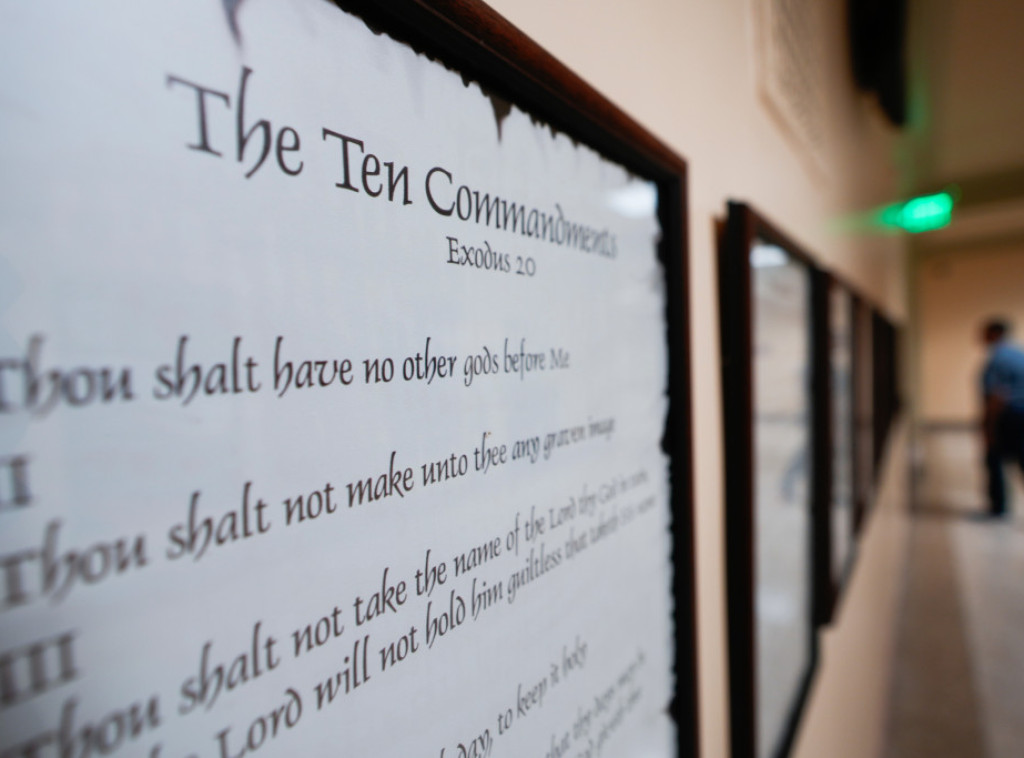 The Ten Commandments
Exodus 20
Thou shalt have no other gods before Me
II
Thou shalt not make unto thee any graven image
III
Thou shalt not take the name of the Lord thy God in vain,
Lord will not hold him guiltless that taketh His name
day, to keep it holy
that thy days may be